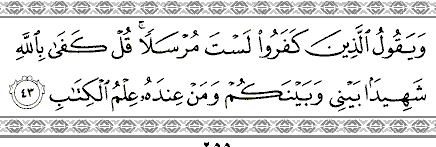 وَيَقُولُ ٱلَّذِينَ كَفَرُوا۟ لَسْتَ مُرْسَلًا ۚ قُلْ كَفَىٰ بِٱللَّهِ
شَهِيدًۢا بَيْنِى وَبَيْنَكُمْ وَمَنْ عِندَهُۥ عِلْمُ ٱلْكِتَـٰبِ ٤٣